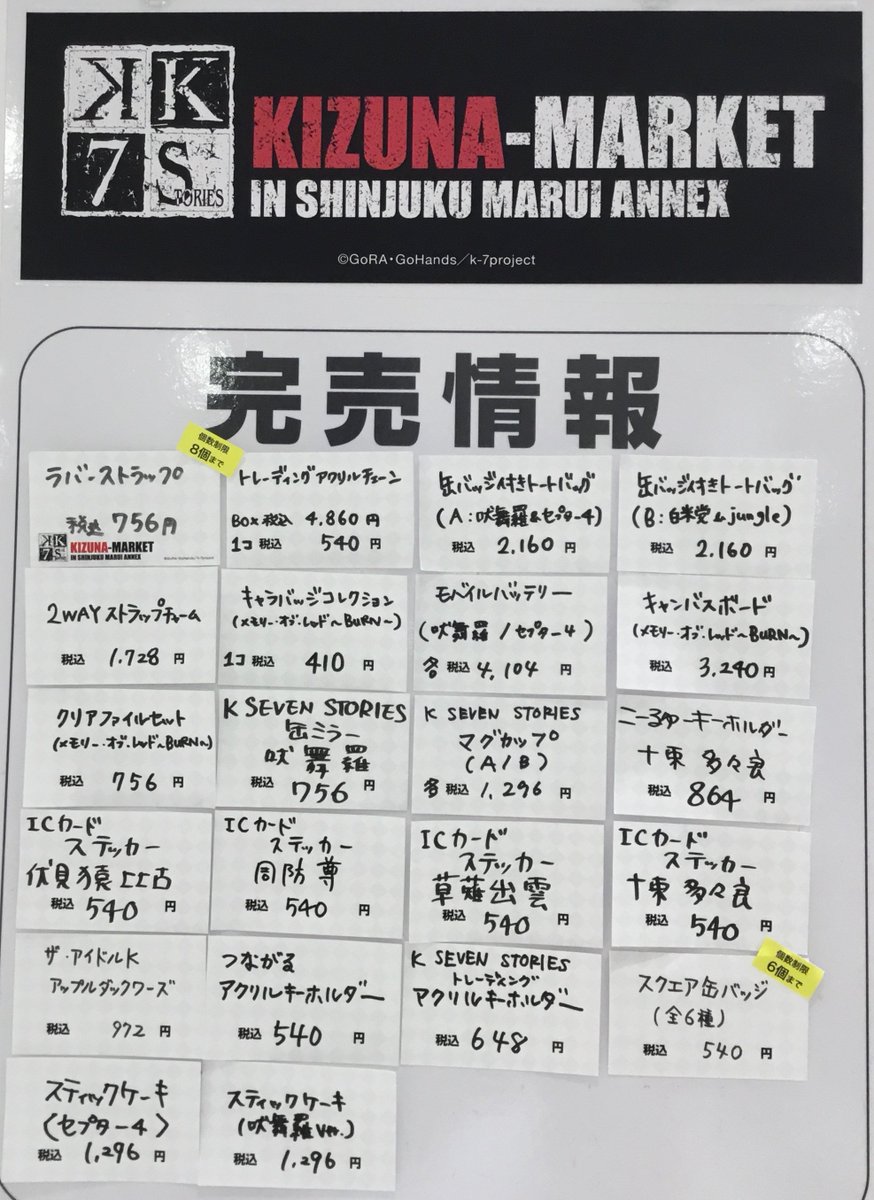 KK
7 STORIES
KIZUNA-MARKET
IN SHINJUKU MARUI ANNEX
©GoRA・GoHands／k-7project
完売情報
ラバーストラップ
税込 756円
KK
7S
KIZUNA-MARKET
IN SHINJUKU MARUI ANNEX
個数制限
8個まで
トレーディングアクリルチェーン
BOX税込 4,860円
1コ 税込 540円
缶バッジ付きトートバッグ
(A:吠舞羅&セプター4)
税込 2,160円
缶バッジ付きトートバッグ
(B:白米党&jungle)
税込 2,160円
2WAYストラップチャーム
税込 1,728円
キャラバッジコレクション
(メモリー・オブ・レッド〜BURN〜)
1コ 税込 410円
モバイルバッテリー
(吠舞羅/セプター4)
各 税込 4,104円
キャンバスボード
(メモリー・オブ・レッド〜BURN〜)
税込 3,240円
クリアファイルセット
(メモリー・オブ・レッド〜BURN〜)
税込 756円
K SEVEN STORIES
缶ミラー
吠舞羅
税込 756円
K SEVEN STORIES
マグカップ
(A/B)
各 税込 1,296円
キーホルダー
十束 多々良
税込 864円
ICカード
ステッカー
伏見猿比古
税込 540円
ICカード
ステッカー
周防 尊
税込 540円
ICカード
ステッカー
草薙出雲
税込 540円
ICカード
ステッカー
十束 多々良
税込 540円
ザ・アイドルK
アップルダックワーズ
税込 972円
つながる
アクリルキーホルダー
税込 540円
K SEVEN STORIES
トレーディング
アクリルキーホルダー
税込 648円
個数制限
6個まで
スクエア缶バッジ
(全6種)
税込 540円
スティックケーキ
(セプター4)
税込 1,296円
スティックケーキ
(吠舞羅ver.)
税込 1,296円